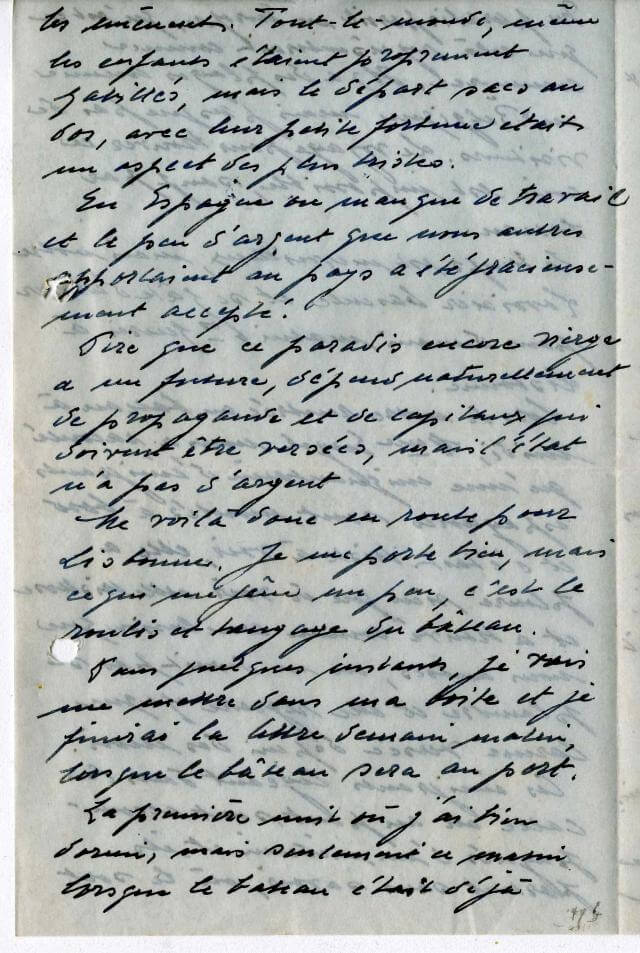 les emmenent. Tout-le-monde, même
les enfants étaient proprement
habillés, mais le départ sacs au
dos, avec leur petite fortune était
un aspect des plus tristes.
En Espagne on manque de travail
et le peu d'argent que nous autres
apportaient au pays a été gracieuse-
ment accepté!
Dire que ce paradis encore vierge
a un future, dépend naturellement
de propagande et de capitaux qui
doivent être versées, mais l'état
n'a pas d'argent
Me voilà donc en route pour
Lisbonne. Je me porte bien, mais
ce qui me gêne un peu, c'est le
roulis et tangage du bâteau.
Dans quelques instants, je vais
me mettre dans ma boite et je
finirai la lettre demain matin,
lorsque le bâteau sera au port.
La première nuit où j'ai bien
dormi, mais seulement ce matin
lorsque le bateau était déjà